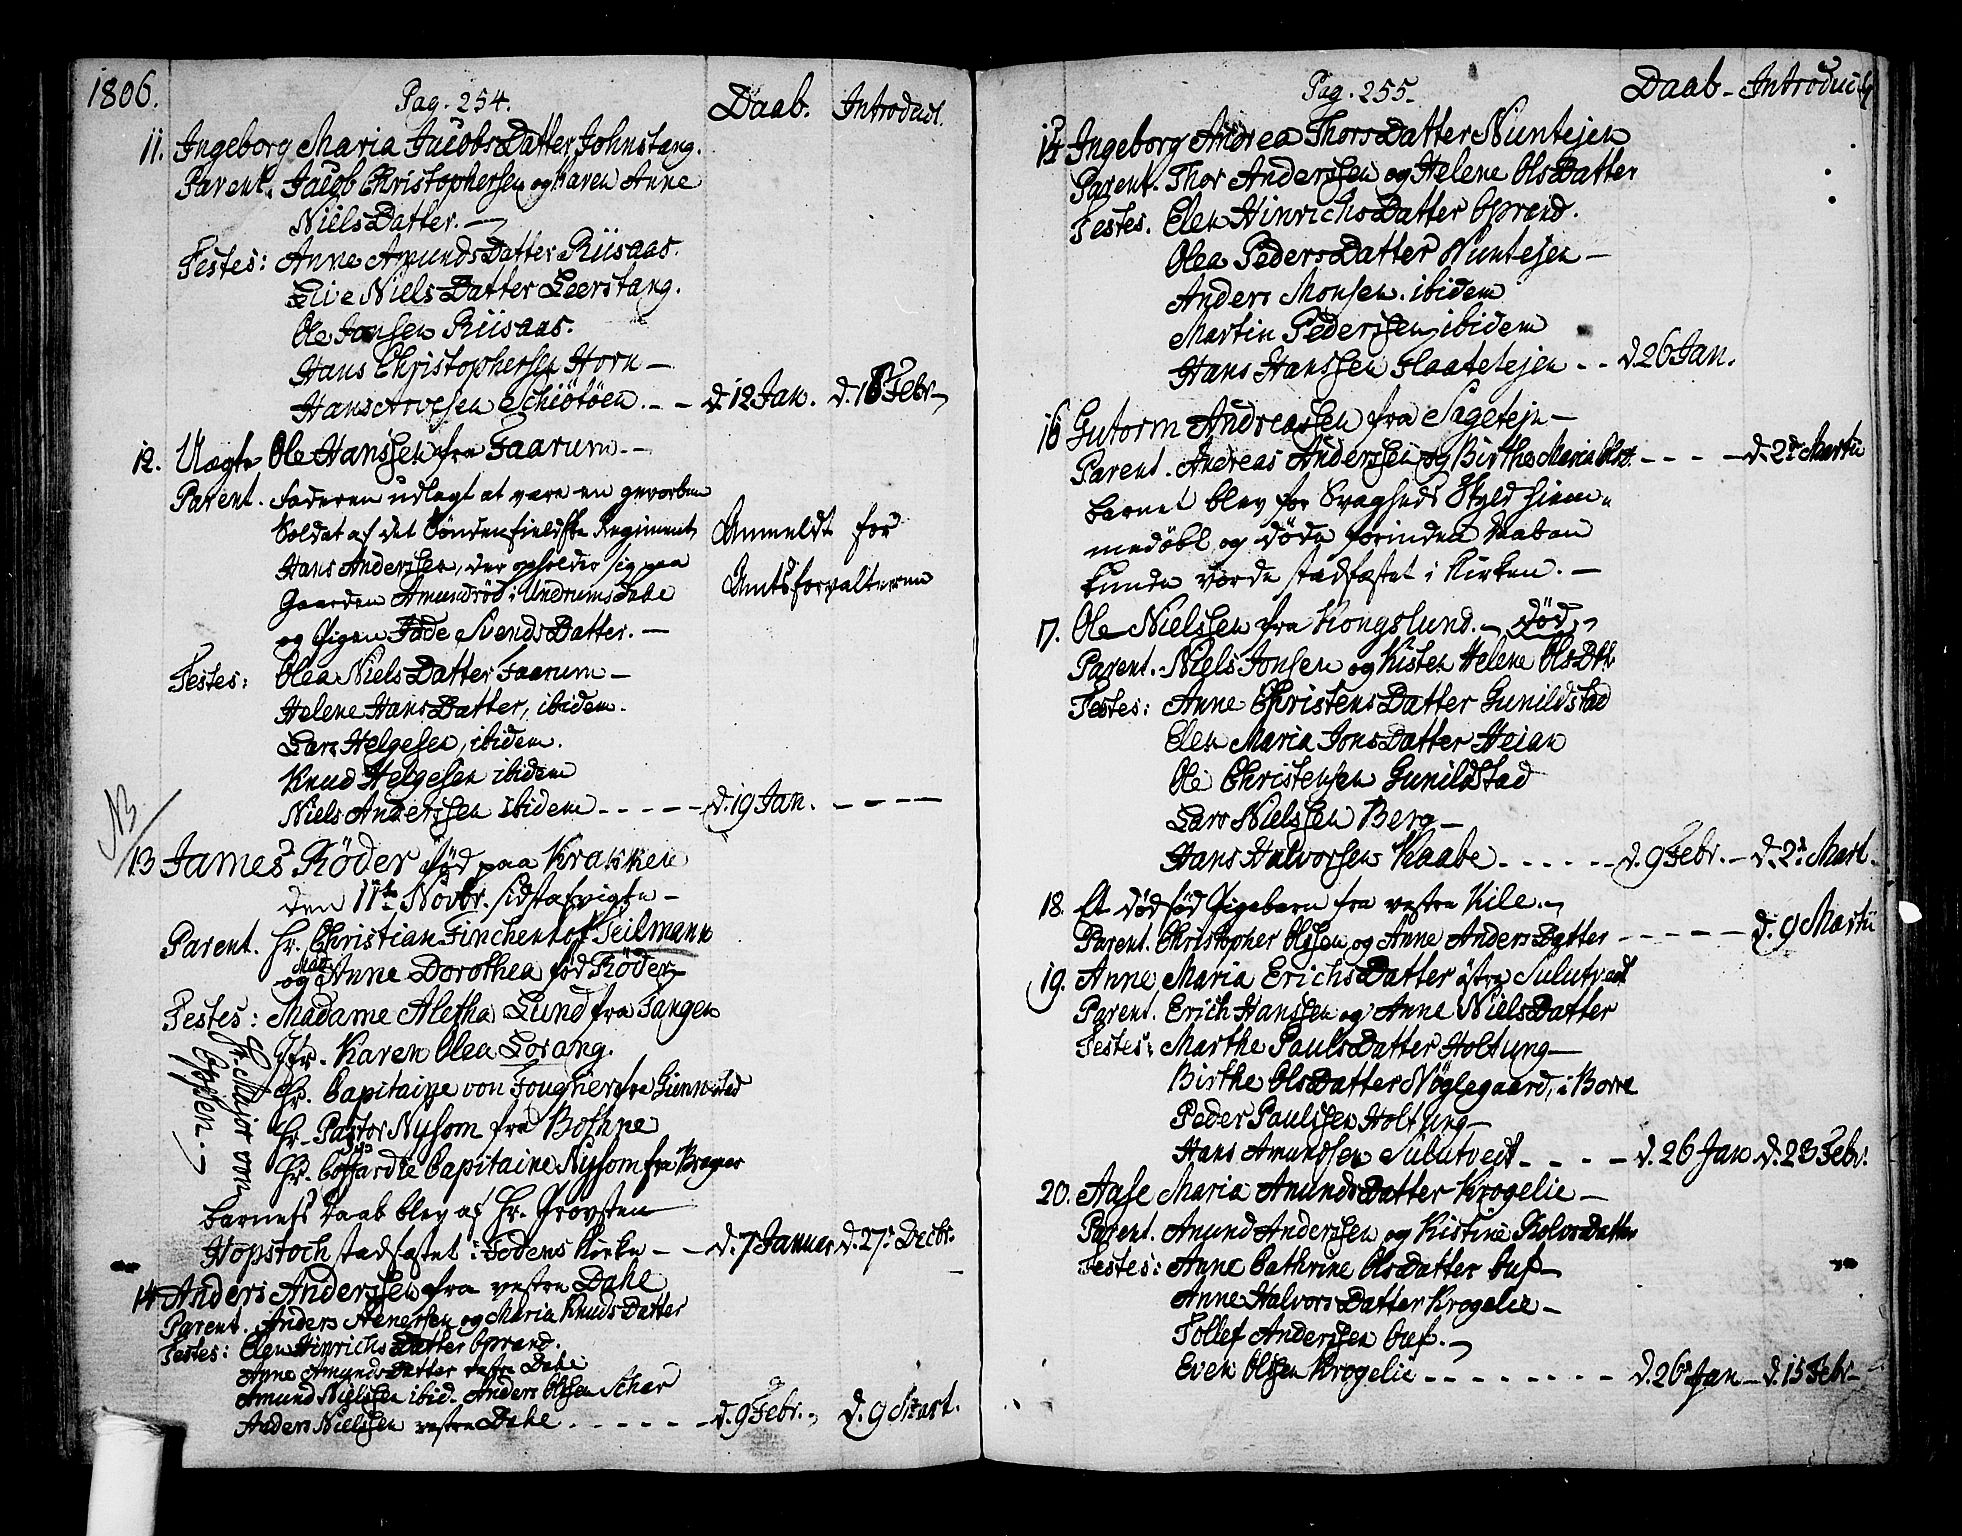 1806.
Pag. 254.
Daab. Introduct.
11. Ingeborg Maria JacobsDatter Johnstang.
Parent. Jacob Christophersen og Karen Anne
NielsDatter. —
Testes: Anne AmundsDatter Riisaas.
Live NielsDatter Leerstang.
Ole Jonsen Riisaas.
Hans Christophersen Horn —
Hans Arvesen Schiötöen. - - d. 12 Jan. d. 16 Febr.
12. Uægte Ole Hanssen fra Faarum. —
Parent. Faderen udlagt at være en gevorben
Soldat af det Söndenfieldske Regiment,
Hans Anderssen, der opholder sig paa
Gaarden Amundröd i UndrumsDahe
og Pigen Jöde SvendsDatter. —
Anmeldt for
Amtsforvalteren
Testes: Olea NielsDatter Faarum —
Helene HansDatter, ibidem.
Lars Helgesen, ibidem.
Knud Helgesen ibidem
Niels Anderssen ibidem - - - - - d. 19 Jan. - - - -
NB
13 James Röder föd paa Krakken
den 17de Novbr. sidstafvigte —
Parent. Hr. Christian Finchenhof Teilmann
og Mad. Anne Dorothea föd Röder
Testes: Madame Aletha Lund fra Tangen
Jfr. Karen Olea Lorang.
Hr. Capitaine von Fougner fra Gunnestad
Hr. Pastor Nysom fra Bothne
Hr. Coffardie Capitaine Nysom fra Bragnes
Hr. Major von
Oppen. —
Barnets Daab blev af Hr. Provsten
Hopstoch stadfæstet i Fodens Kirke - - d. 7 Januar d. 27de Decbr.
14 Anders Anderssen fra vestre Dahe
Parent. Anders Abnersen og Maria KnudsDatter
Testes: Elen HinrichsDatter Oprand.
Anne AmundsDatter vestre Dahe
Amund Nielssen ibid. Anders Olssen Schar
Anders Nielssen vestre Dahe - - - - - - d. 9 Febr. d. 9 Mart.
Pag. 255.
Daab - Introduct
15 Ingeborg Andrea ThorsDatter Nuntejen
Parent. Thor Anderssen og Helene OlsDatter
Testes. Elen HinrichsDatter Oprand.
Olea PedersDatter Nuntejen —
Anders Monsen. ibidem
Martin Pederssen ibidem
Hans Hanssen Flaatetejen - - d. 26 Jan.
16 Gutorm Andreassen fra Sagetejn —
Parent. Andreas Anderssen og Birthe Maria Olsd. - - - - d. 2de Martii
Barnet blev for Svagheds Skyld hiem-
medöbt og döde forinden Daaben
kunde vorde stadfæstet i Kirken. —
17. Ole Nielssen fra Kongslund. - död
Parent. Niels Jonsen og Kisten Helene OlsDtr
Testes: Anne ChristensDatter Gunildstad
Elen Maria JonsDatter Heian
Ole Christensen Gunildstad
Lars Nielssen Berg —
Hans Halvorsen Kaabe - - - - - - d. 9 Febr. - d. 2de Mart.
18. Et dödföd Pigebarn fra vestre Kile.
Parent. Christopher Olssen og Anne AndersDatter - - - - - d. 9 Martii
19. Anne Maria ErichsDatter östre Sulutvedt
Parent. Erich Hanssen og Anne NielsDatter
Testes: Marthe PaulsDatter Holtung —
Birthe OlsDatter Nöglegaard, i Borre
Peder Paulssen Holtung —
Hans Amundsen Sulutvedt - - - - d. 26 Jan d. 23 Febr.
20. Aase Maria AmundsDatter Krogelie —
Parent. Amund Anderssen og Kistine KolvsDatter
Testes: Anne Cathrine OlsDatter Ouf —
Anne HalvorsDatter Krogelie —
Tollef Anderssen Ouf.
Even Olssen Krogelie - - - - - - - - d. 26 Jan - d. 15 Febr